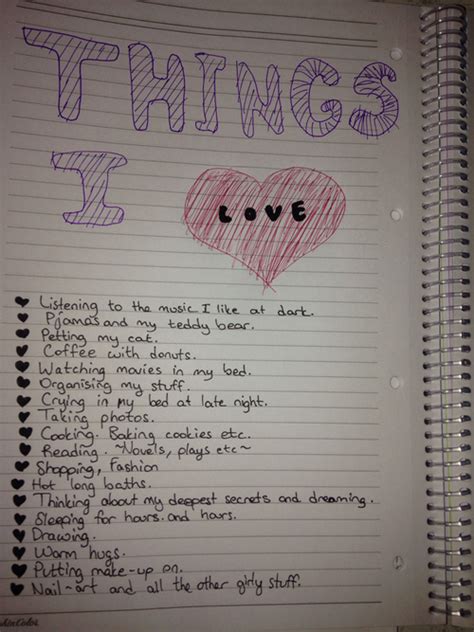 THINGS
I LOVE
Listening to the music I like at dark.
Pjamas and my teddy bear.
Petting my cat.
Coffee with donuts.
Watching movies in my bed.
Organising my stuff.
Crying in my bed at late night.
Taking photos.
Cooking. Baking cookies etc.
Reading. ~Novels, plays etc~
Shopping, Fashion
Hot long baths.
Thinking about my deepest secrets and dreaming.
Sleeping for hours and hours.
Drawing.
Warm hugs.
Putting make-up on.
Nail-art and all the other girly stuff.